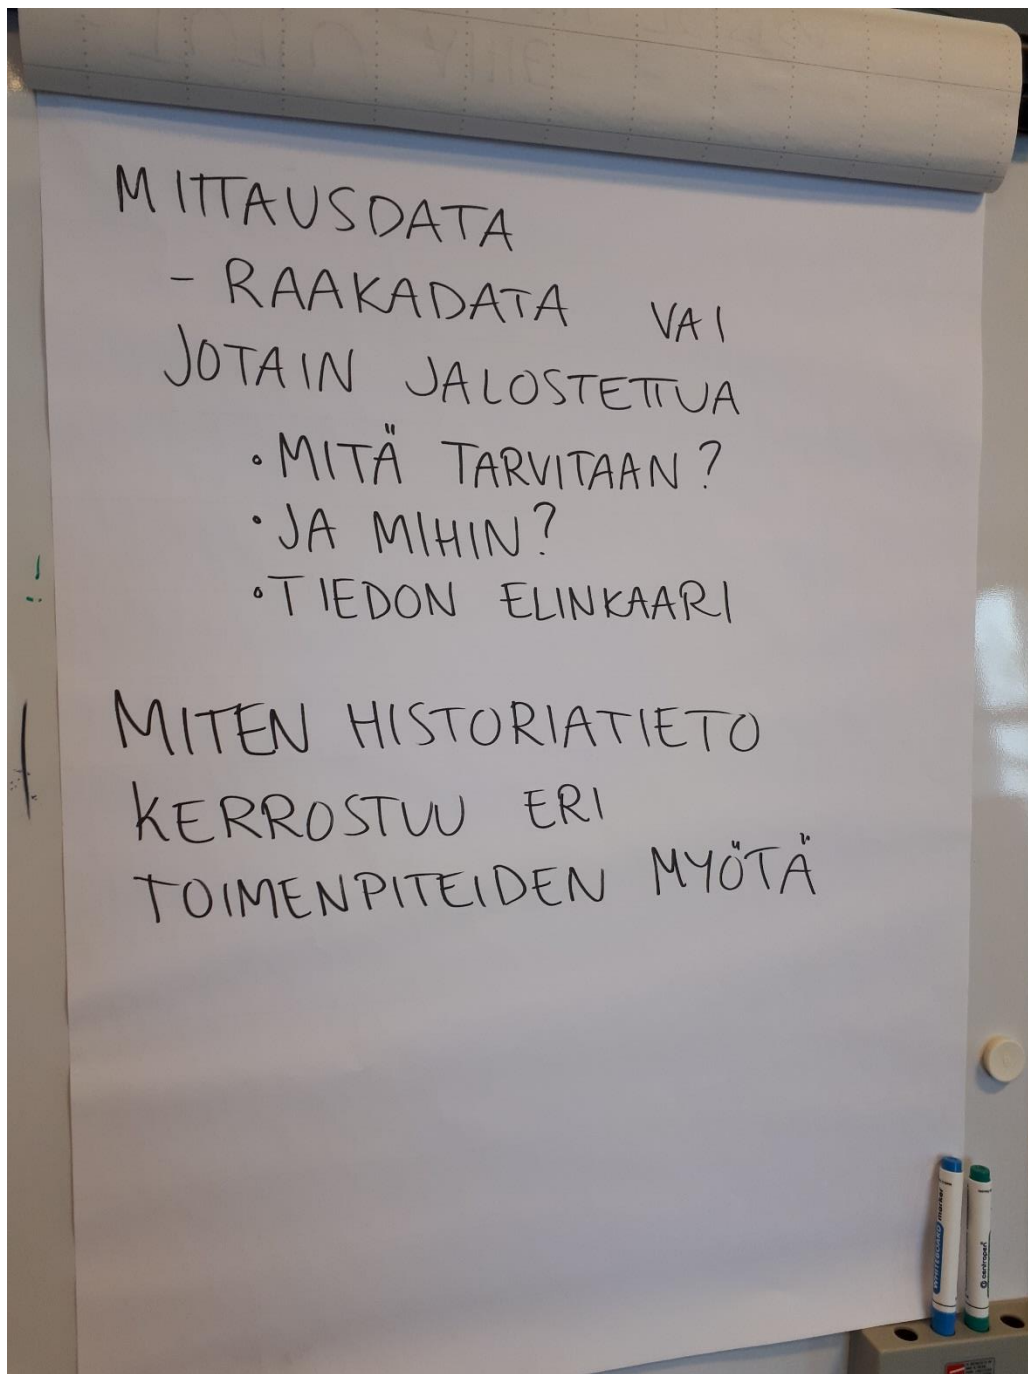 MITTAUSDATA
- RAAKADATA VAI
JOTAIN JALOSTETTUA
• MITÄ TARVITAAN?
• JA MIHIN?
• TIEDON ELINKAARI
MITEN HISTORIATIETO
KERROSTUU ERI
TOIMENPITEIDEN MYÖTÄ
WHITEBOARD marker
centropen